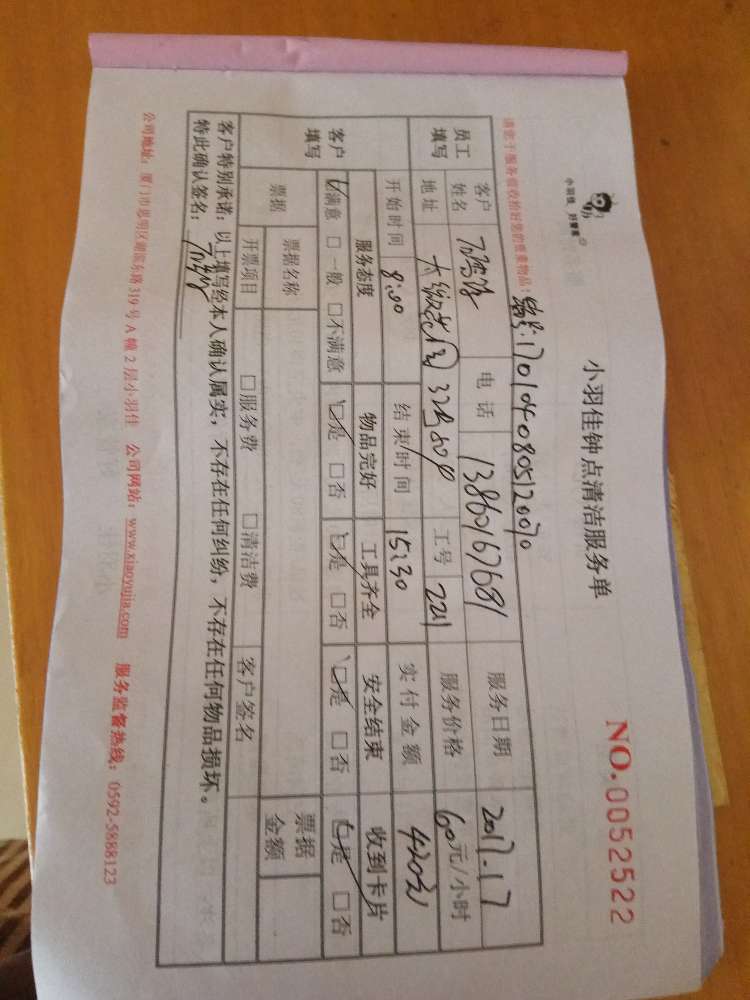 小羽佳，好管家
小羽佳钟点清洁服务单
NO.0052522
请您于服务前收拾好您的贵重物品：
1701040805120070
员工填写
客户姓名
电话 13860167681
服务日期 2017.1.7
地址
32号509
工号 2211
服务价格 60元/小时
客户填写
开始时间 8:00
结束时间 15:30
实付金额 420元
服务态度 物品完好 工具齐全 安全结束 收到卡片
☑满意 □一般 □不满意 ☑是 □否 ☑是 □否 ☑是 □否 ☑是 □否
票据
票据名称
票据金额
开票项目 □服务费 □清洁费 客户签名
客户特别承诺：以上填写经本人确认属实，不存在任何纠纷，不存在任何物品损坏。
特此确认签名：
公司地址：厦门市思明区湖滨东路319号A幢2层小羽佳 公司网站：www.xiaoyujia.com 服务监督热线：0592-5888123